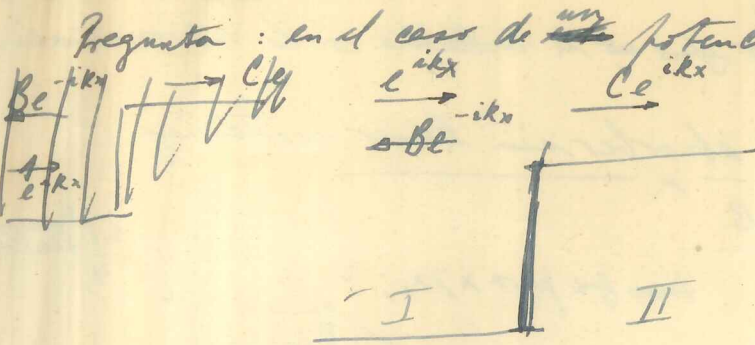 Pregunta : en el caso de un potenc
Be^{-ikx} C e^{ikx} Ce^{ikx}
Be^{-ikx}
I II